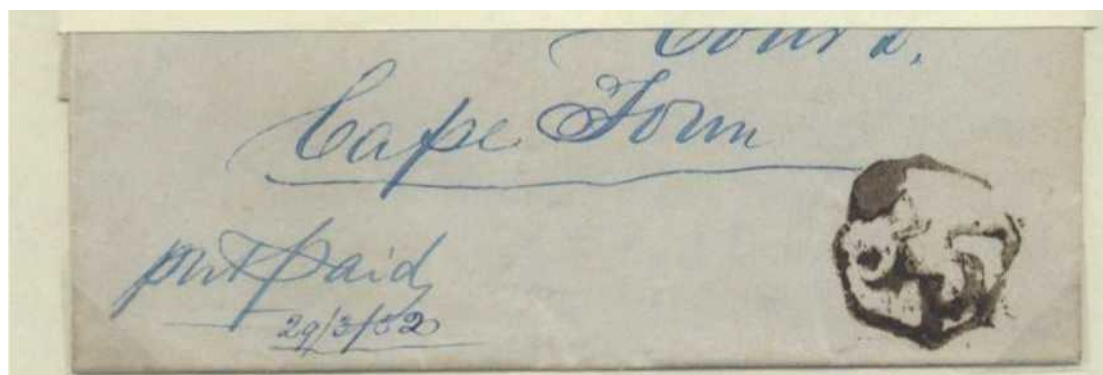 Court,
Cape Town
post paid
29/3/52